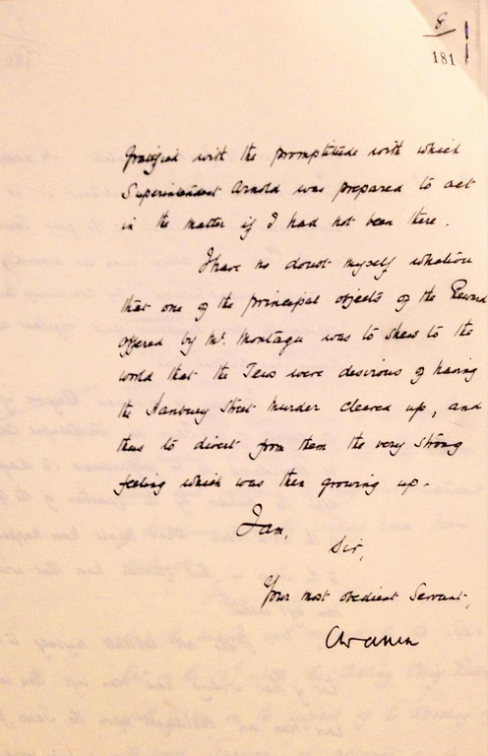 8
181
gratified with the promptitude with which
Superintendent Arnold was prepared to act
in the matter if I had not been there.
I have no doubt myself whatever
that one of the principal objects of the Reward
offered by Mr. Montagu was to shew to the
world that the Jews were desirous of having
the Hanbury Street Murder cleared up, and
thus to divert from them the very strong
feeling which was then growing up.
I am,
Sir,
Your most obedient Servant,
CWarren